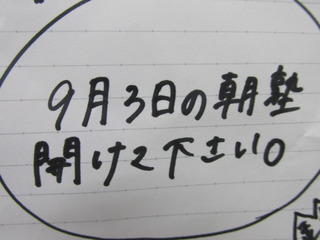 9月3日の朝塾
開けて下さい。